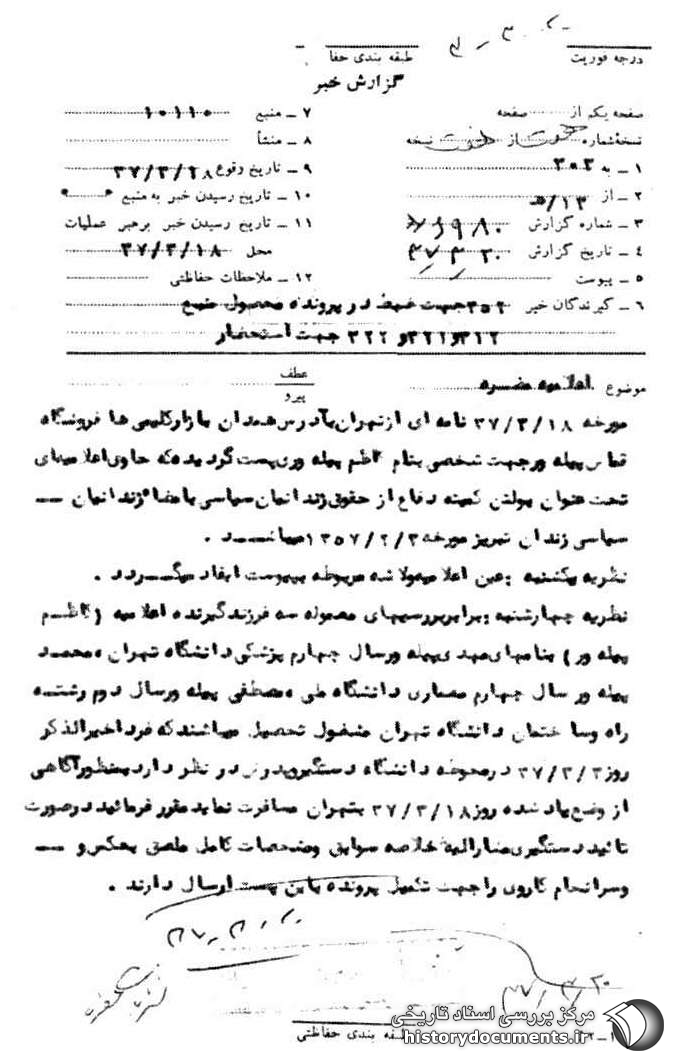 درجه فوریت
طبقه بندی حفا
گزارش خبر
صفحه یکم از صفحه
نسخه شماره از نسخه
۱ - به ۳۰۲
۲ - از ۱۳/هـ
۳ - شماره گزارش
۴ - تاریخ گزارش
۵ - پیوست
۶ - گیرندگان خبر ۳۵۲ جهت ضبط در پرونده محصول منبع
۳۱۲ و ۳۲۱ و ۳۲۲ جهت استحضار
۷ - منبع ۱۰۱۱۰
۸ - منشأ
۹ - تاریخ وقوع ۳۷/۳/۱۸
۱۰ - تاریخ رسیدن خبر به منبع
۱۱ - تاریخ رسیدن خبر برهبر عملیات
محل ۳۷/۳/۱۸
۱۲ - ملاحظات حفاظتی
موضوع اعلامیه مضره
عطف
پیرو
مورخه ۳۷/۳/۱۸ نامه ای از تهران بآدرس همدان بازار کلیمی ها فروشگاه
قماش پیله ور جهت شخصی بنام کاظم پیله وری پست گردیده که حاوی اعلامیه ای
تحت عنوان بولتن کمیته دفاع از حقوق زندانیان سیاسی با مضاء زندانیان —
سیاسی زندان تبریز مورخه ۱۳۵۷/۲/۳ میباشد .
نظریه یکشنبه : عین اعلامیه واشده مربوطه بپیوست ایفاد میگردد .
نظریه چهارشنبه : برابر بررسیهای معموله سه فرزند گیرنده اعلامیه ( کاظم
پیله ور ) بنامهای مهدی پیله ور سال چهارم پزشکی دانشگاه تهران محمد
پیله ور سال چهارم معماری دانشگاه ملی مصطفی پیله ور سال دوم رشته
راه وساختمان دانشگاه تهران مشغول تحصیل میباشند که فرد اخیرالذکر
روز ۳۷/۳/۳ در محوطه دانشگاه دستگیر و پدرش در نظر دارد بمنظور آگاهی
از وضع یاد شده روز ۳۷/۳/۱۸ بتهران مسافرت نماید مقرر فرمائید در صورت
تائید دستگیری مشارالیه خلاصه سوابق ومشخصات کامل ملصق بعکس و —
وسرانجام کار وی را جهت تکمیل پرونده باین بست ارسال دارند .
طبقه بندی حفاظتی
مرکز بررسی اسناد تاریخی
historydocuments.ir